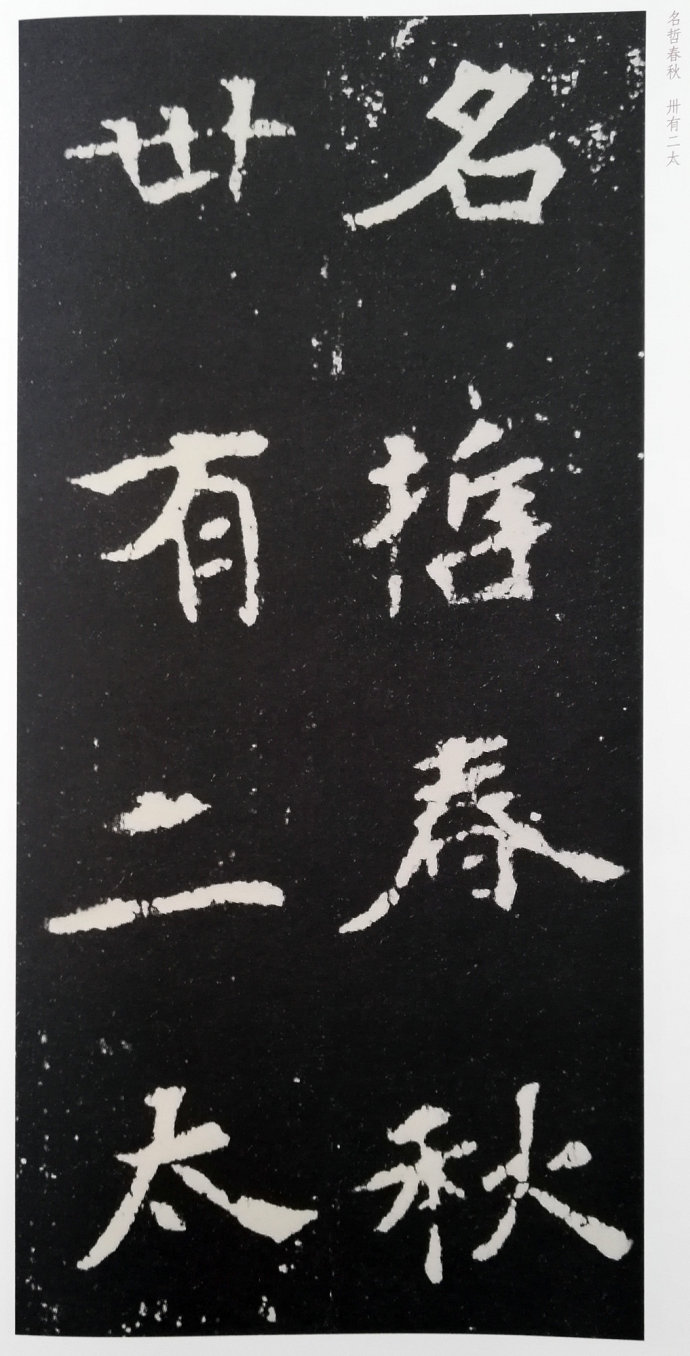 名哲春秋
卅有二太
名哲春秋 卅有二太